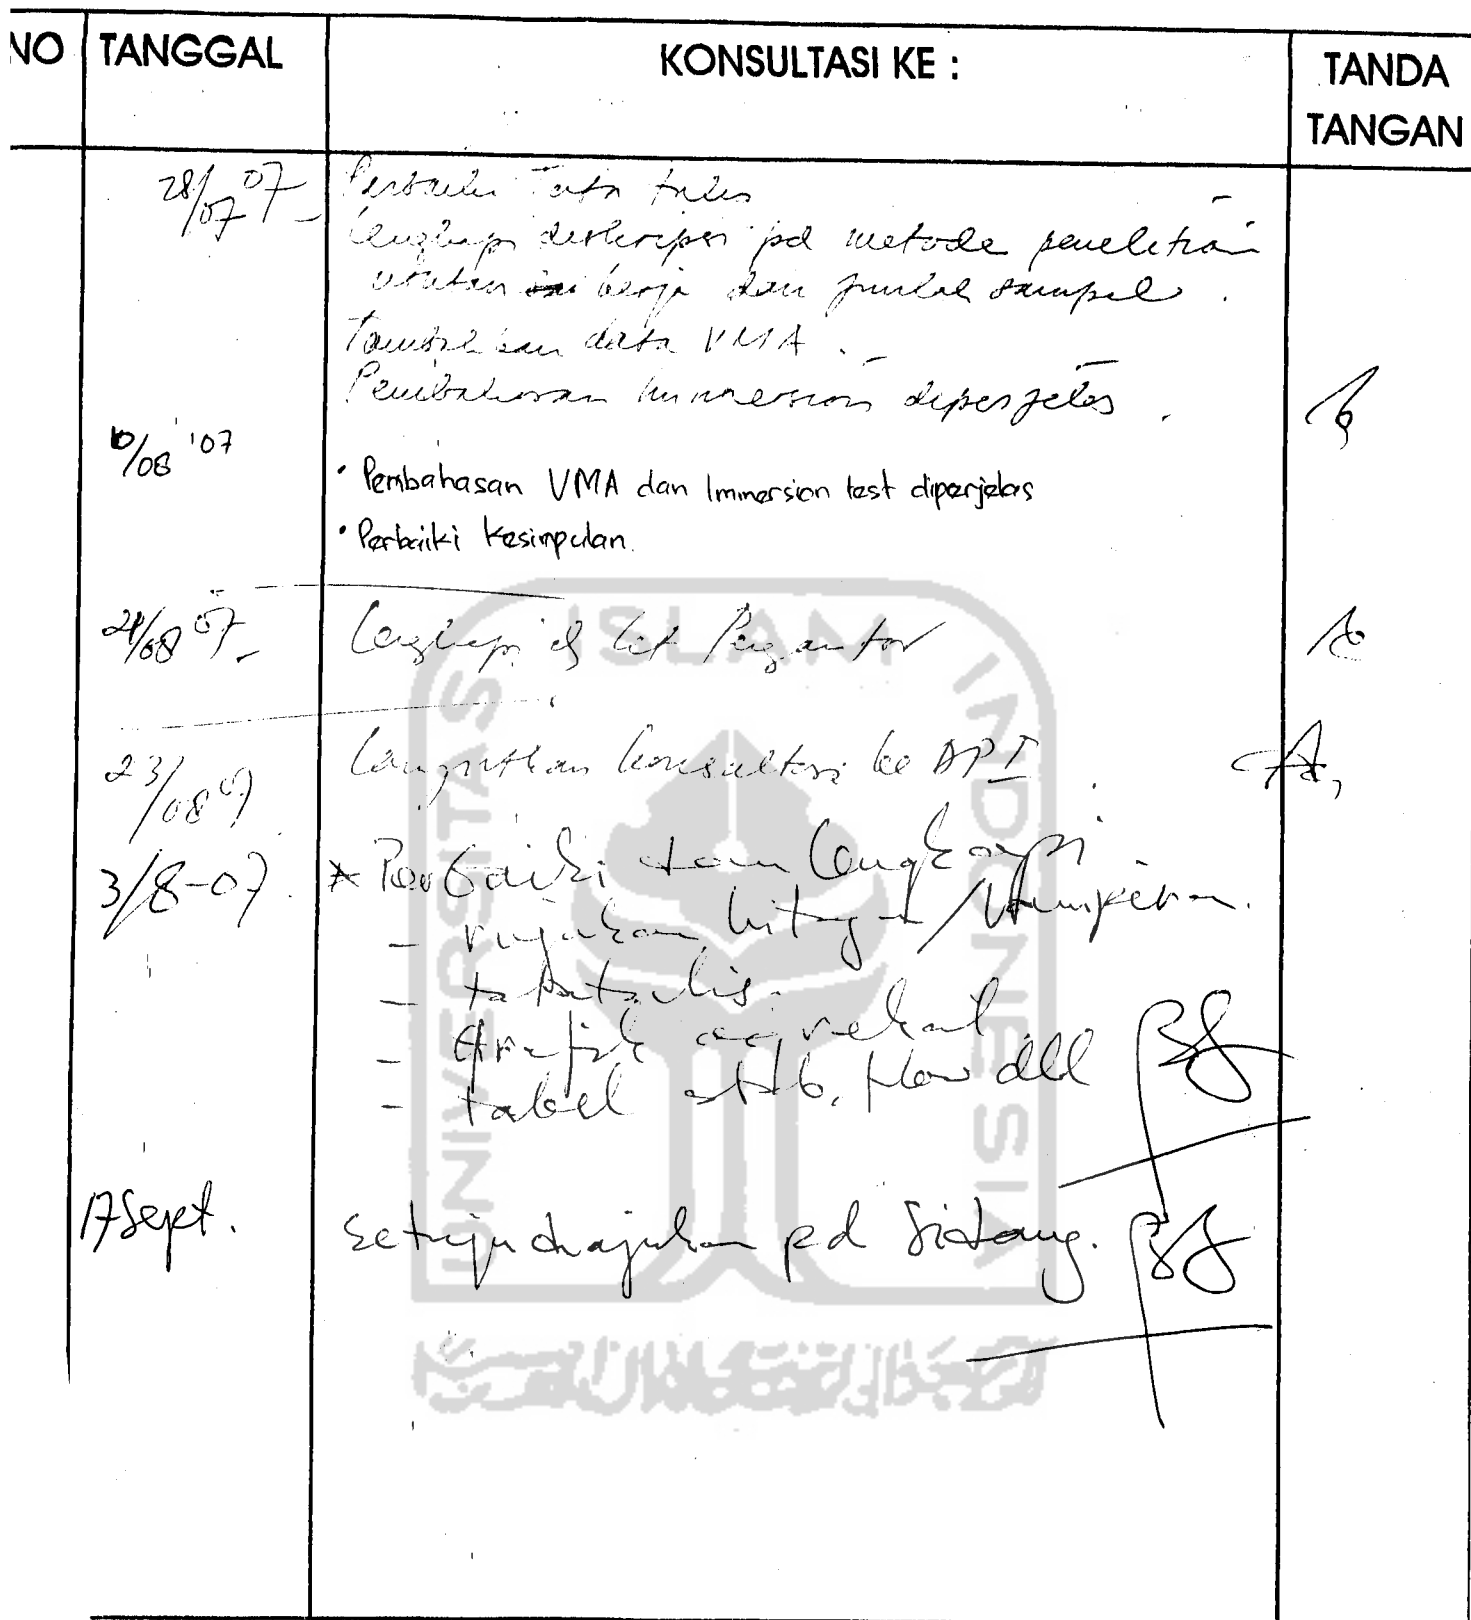 NO TANGGAL KONSULTASI KE : TANDA TANGAN
28/07 07 Perbaiki Tata tulis
Lengkapi deskripsi pd metode penelitian
urutan kerja dan jumlah sampel.
Tambahkan data VMA.
Pembahasan Immersion diperjelas.
10/08 '07
• Pembahasan VMA dan Immersion test diperjelas
• Perbaiki Kesimpulan.
21/08 07 Lengkapi Pengantar
23/08 07 Lanjutkan konsultasi ke DP I
3/8-07. * Perbaiki dan lengkapi
- rujukan, hitungan / lampiran.
- tata tulis.
- Grafik agregat
- tabel stab, flow dll
17 Sept. Setuju diajukan pd Sidang.
UNIVERSITAS ISLAM INDONESIA